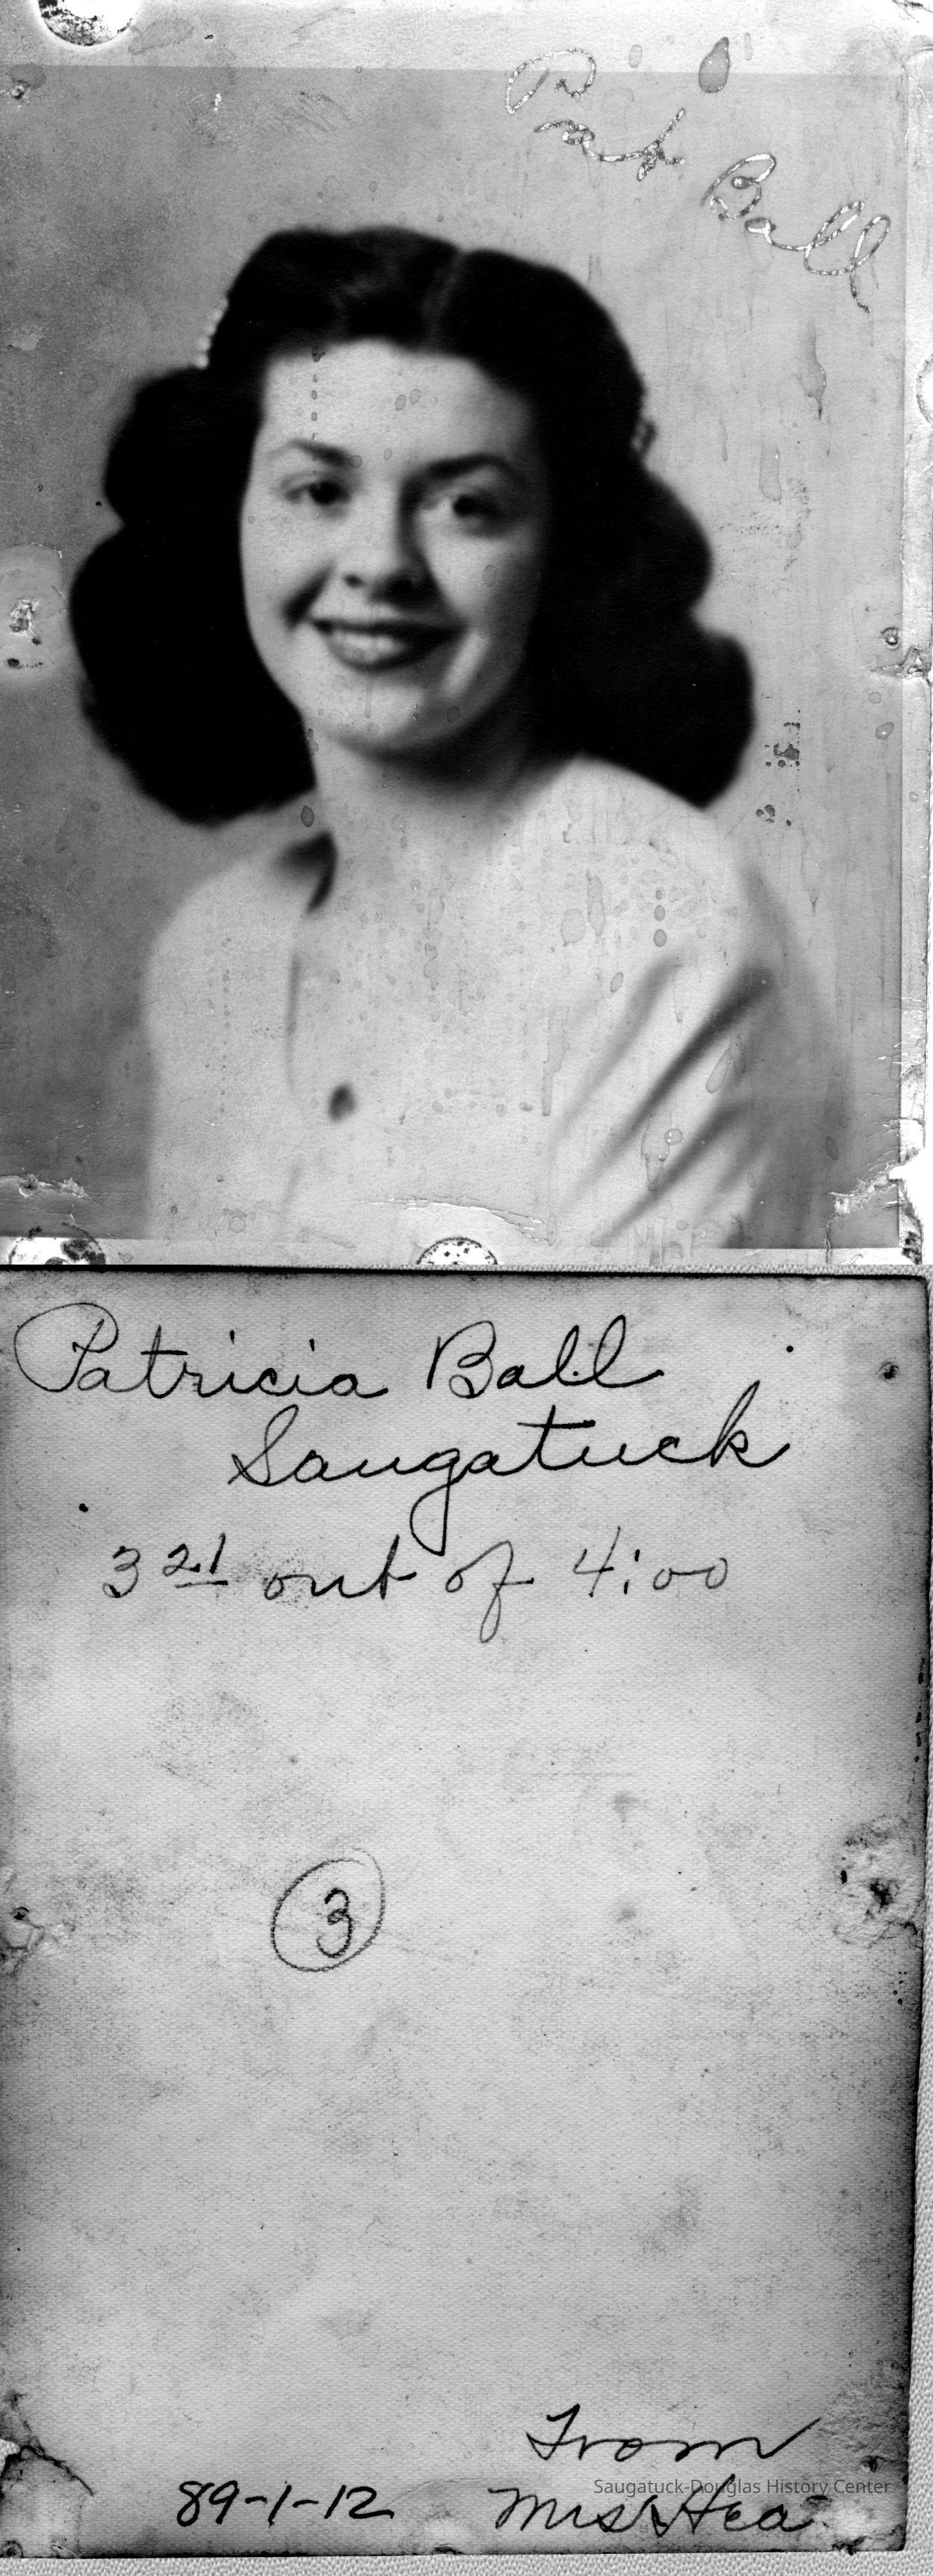 Pat
Ball
Patricia Ball
Saugatuck
3 21 out of 4:00
3
From
Saugatuck-Douglas History Center
89-1-12